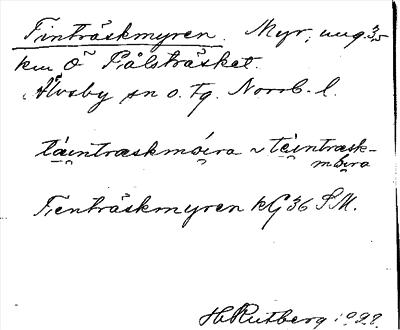 Finträskmyren. Myr, ung. 3,5
km Ö Pålsträsket.
Älvsby sn o. tg. Norrb. l.
täintræskmóira ~ teintræsk-
móira
Fenträskmyren kG36 SM.
H. Rutberg 1928.